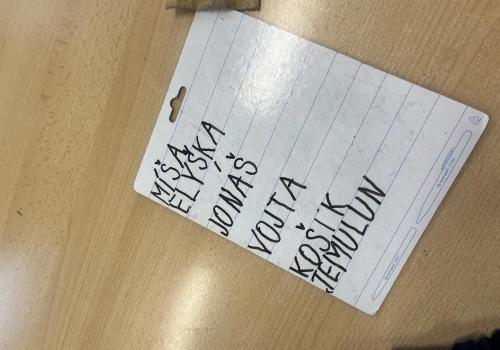 MÍŠA
ELYŠKA
JONÁŠ
VOJTA
KOŠÍK
TEMULUN